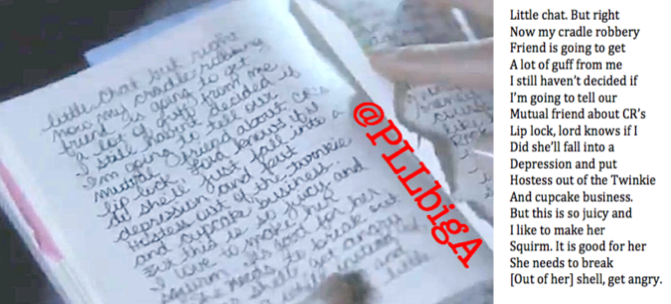 little chat but right
now my cradle robbing
friend is going to get
A lot of guff from me
I still haven't decided if
I'm going to tell our
mutual friend about CR's
lip lock. Lord knows if I
did she'll just fall into a
depression and put
Hostess out of the twinkie
and cupcake business.
But this is so juicy and
I love to make her
squirm. It's good for her
she needs to break out
shell, get angry
@PLLbigA
Little chat. But right
Now my cradle robbery
Friend is going to get
A lot of guff from me
I still haven't decided if
I'm going to tell our
Mutual friend about CR's
Lip lock, lord knows if I
Did she'll fall into a
Depression and put
Hostess out of the Twinkie
And cupcake business.
But this is so juicy and
I like to make her
Squirm. It is good for her
She needs to break
[Out of her] shell, get angry.